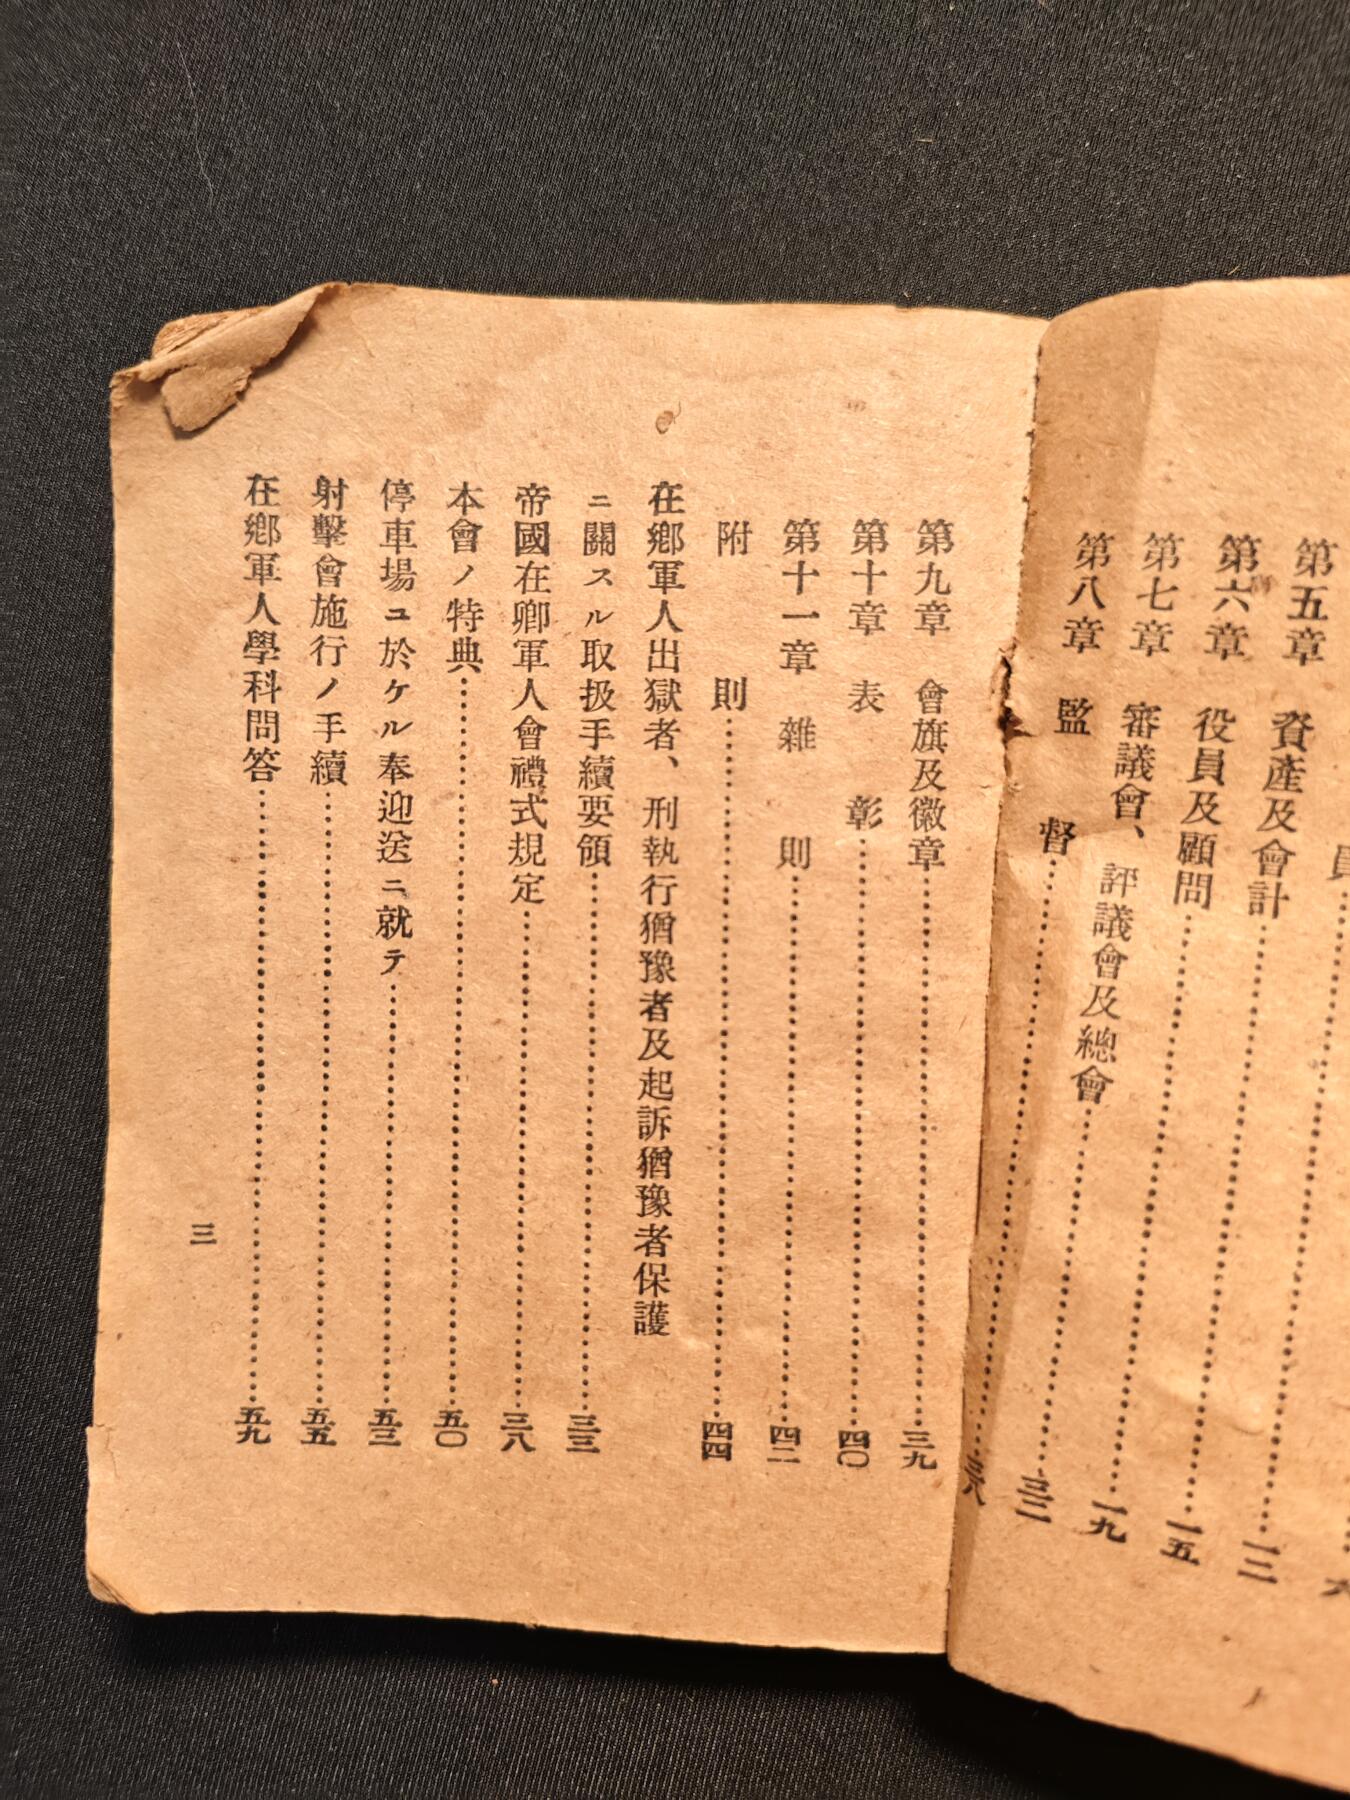 員……一二
第五章 資產及會計……一五
第六章 役員及顧問……一九
第七章 審議會、評議會及總會……三二
第八章 監督……三八
第九章 會旗及徽章……三九
第十章 表彰……四〇
第十一章 雜則……四二
附則……四四
在鄉軍人出獄者、刑執行猶豫者及起訴猶豫者保護
ニ關スル取扱手續要領……三三
帝國在卿軍人會禮式規定……三八
本會ノ特典……五〇
停車場ユ於ケル奉迎送ニ就テ……五三
射擊會施行ノ手續……五五
在鄉軍人學科問答……五九
三